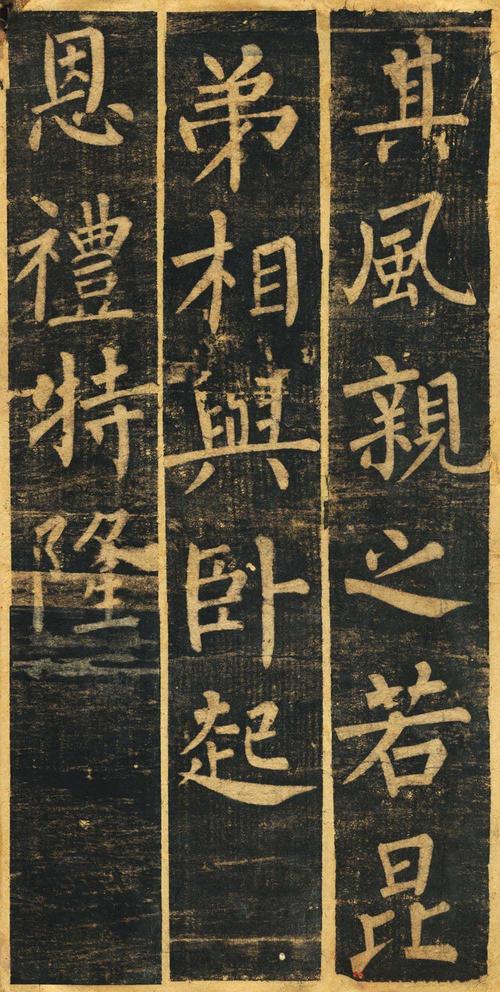 其風親之若昆
弟相與卧起
恩禮特隆